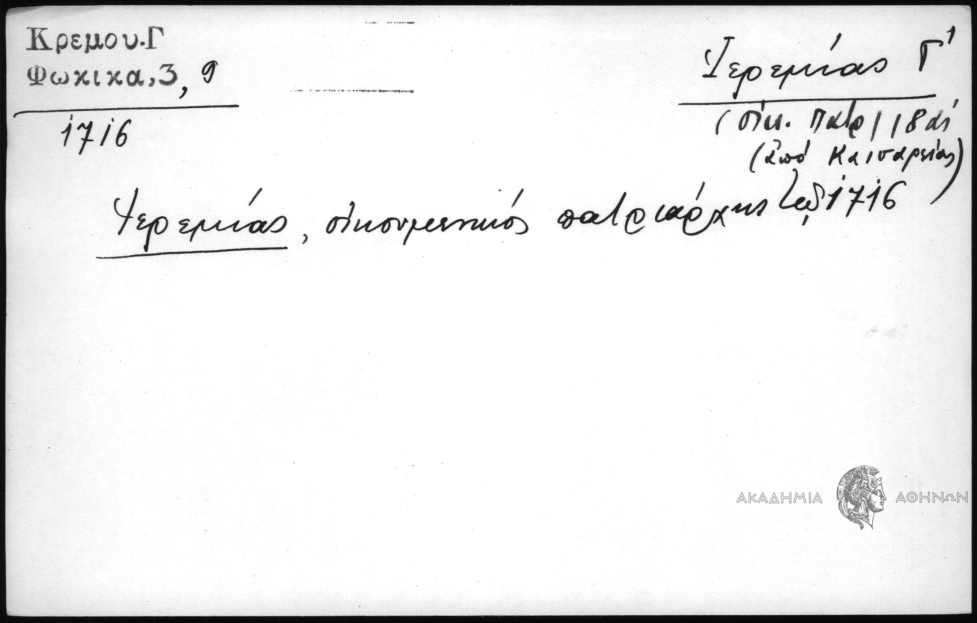 Κρεμου.Γ
Φωκικα,3, 9
1716
Ἱερεμίας Γ'
(οἰκ. Πατρ| 18 αἰ
(ἀπό Καισαρείας)
Ἱερεμίας, οἰκουμενικός πατριάρχης τῷ 1716
ΑΚΑΔΗΜΙΑ ΑΘΗΝΩΝ